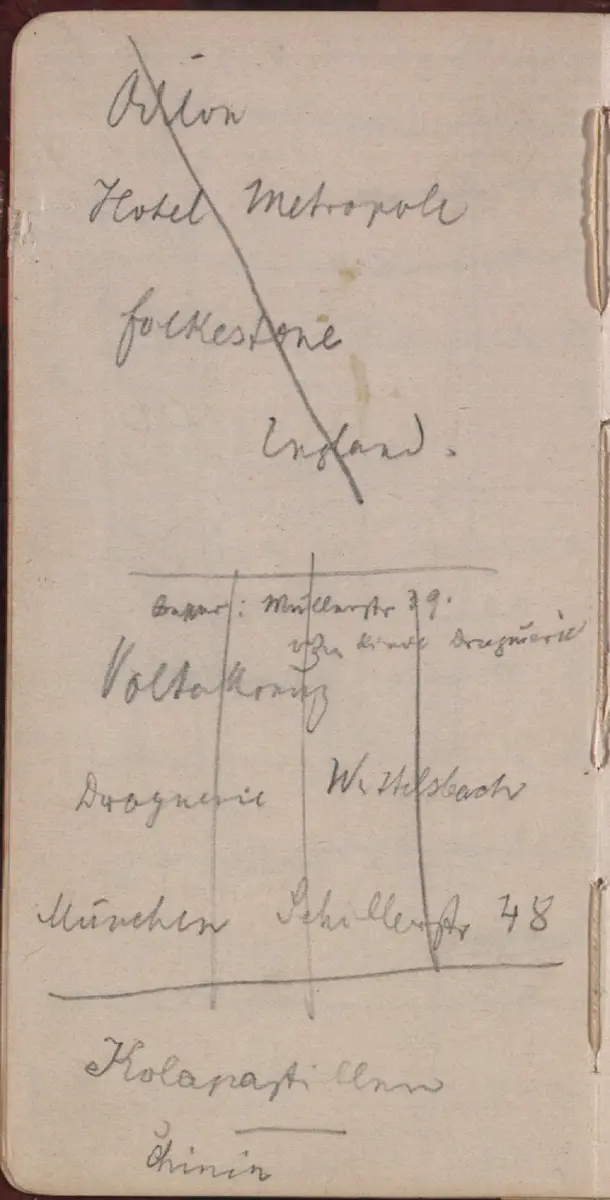 Odilon
Hotel Metropole
Folkestone
England.
Müllerstr 39.
Droguerie
Voltakreuz
Droguerie Wittelsbach
München Schillerstr 48
Kolapastillen
Chinin